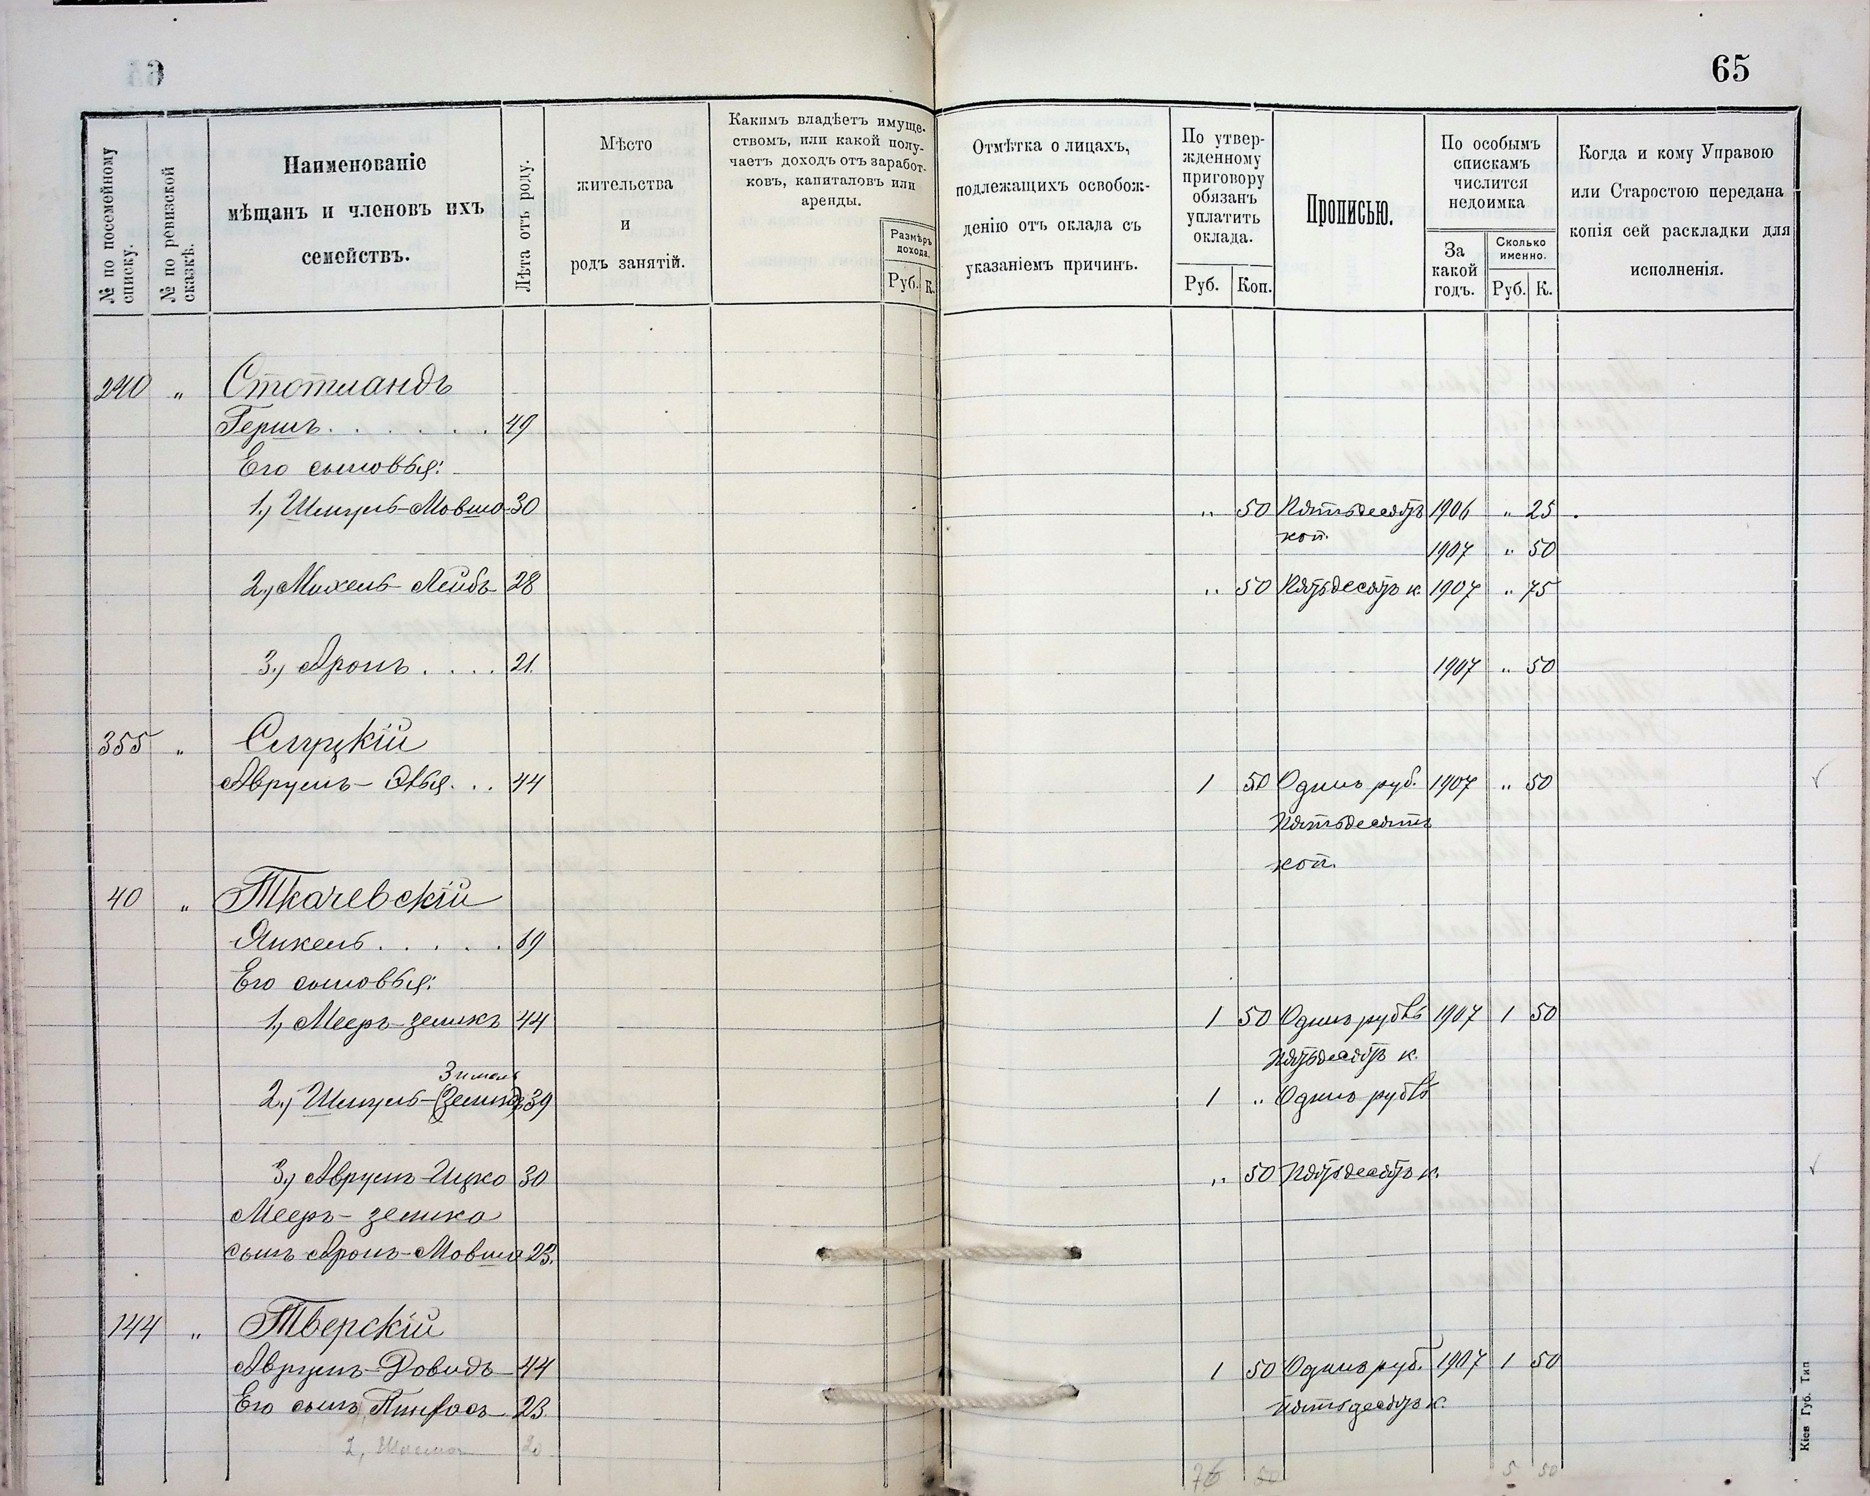 65
№ по посемейному списку.
№ по ревизской сказкѣ.
Наименованіе
мѣщанъ и членовъ ихъ
семействъ.
Лѣта отъ роду.
Мѣсто
жительства
и
родъ занятій.
Какимъ владѣетъ имуще-
ствомъ, или какой полу-
чаетъ доходъ отъ заработ-
ковъ, капиталовъ или
аренды.
Размѣръ
дохода.
Руб. К.
Отмѣтка о лицахъ,
подлежащихъ освобож-
денію отъ оклада съ
указаніемъ причинъ.
По утвер-
жденному
приговору
обязанъ
уплатить
оклада.
Руб. Коп.
Прописью.
По особымъ
спискамъ
числится
недоимка
За
какой
годъ.
Сколько
именно.
Руб. К.
Когда и кому Управою
или Старостою передана
копія сей раскладки для
исполненія.
290 " Стотландъ
Гершъ . . . . . . 49
Его сыновья:
1.) Шмуль-Мовша 30 " 50 Пятьдесятъ 1906 " 25
коп. 1907 " 50
2.) Михель-Лейбъ 28 " 50 Пятьдесятъ к. 1907 " 75
3.) Аронъ . . . . 21. 1907 " 50
355 " Слуцкій
Аврумъ-Элья . . 44 1 50 Одинъ руб. 1907 " 50
Пятьдесятъ
коп.
40 " Ткачевскій
Янкель . . . . . 69
Его сыновья:
1.) Мееръ-зеликъ 44 1 50 Одинъ рубль 1907 1 50
Пятьдесятъ к.
Зимель
2.) Шмуль-(Зеликъ) 39 1 " Одинъ рубль
3.) Аврумъ-Ицко 30 " 50 Пятьдесятъ к.
Мееръ-зелика
сынъ Аронъ-Мовша 23.
144 " Тверскій
Аврумъ-Довидъ 44 1 50 Одинъ руб. 1907 1 50
Его сынъ Пинхасъ 23. пятьдесятъ к.
2, 20
76 50 5 50
Кіев Губ. Тип